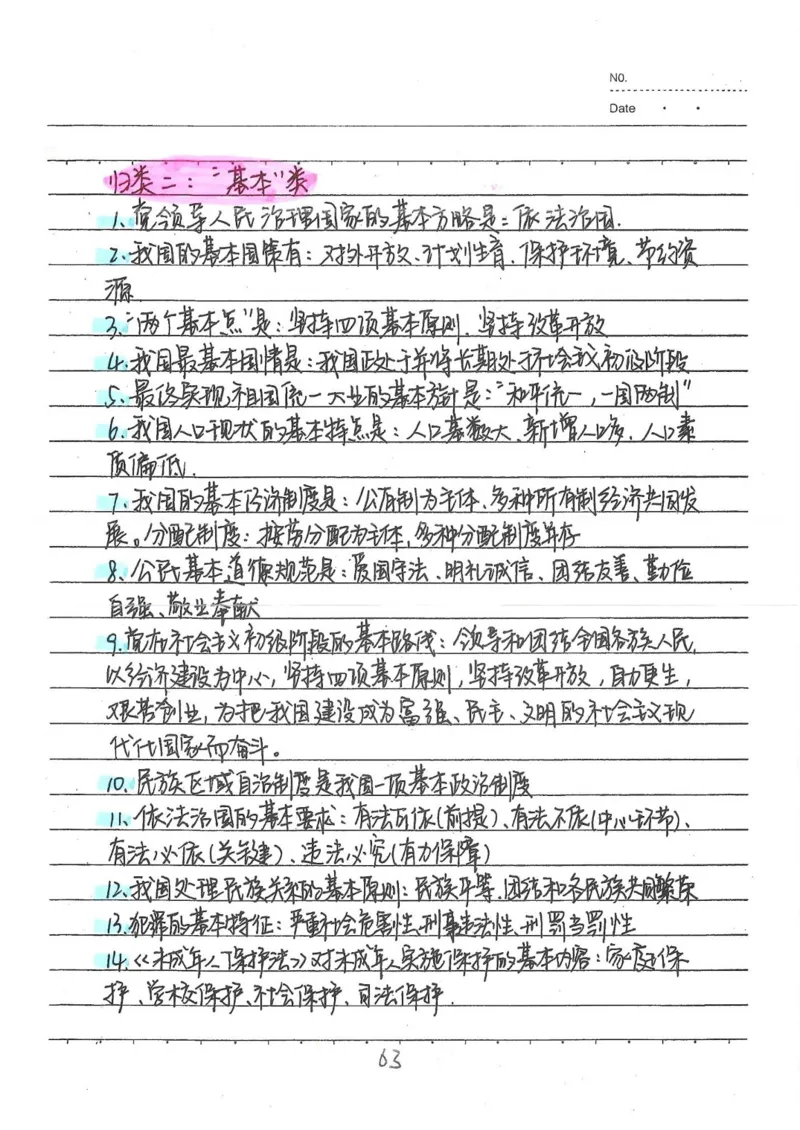 NO.
Date
归类二：“基本”类
1、党领导人民治理国家的基本方略是：依法治国.
2、我国的基本国策有：对外开放、计划生育、保护环境、节约资
源
3、“两个基本点”是：坚持四项基本原则、坚持改革开放
4、我国最基本国情是：我国正处于并将长期处于社会主义初级阶段
5、最终实现祖国统一大业的基本方针是：“和平统一，一国两制”
6、我国人口现状的基本特点是：人口基数大、新增人口多、人口素
质偏低.
7、我国的基本经济制度是：公有制为主体、多种所有制经济共同发
展。分配制度：按劳分配为主体，多种分配制度并存
8、公民基本道德规范是：爱国守法、明礼诚信、团结友善、勤俭
自强、敬业奉献
9、党在社会主义初级阶段的基本路线：领导和团结全国各族人民，
以经济建设为中心，坚持四项基本原则，坚持改革开放，自力更生，
艰苦创业，为把我国建设成为富强、民主、文明的社会主义现
代化国家而奋斗。
10、民族区域自治制度是我国一项基本政治制度
11、依法治国的基本要求：有法可依(前提)、有法不依(中心环节)、
有法必依(关键)、违法必究(有力保障)
12、我国处理民族关系的基本原则：民族平等、团结和各民族共同繁荣
13、犯罪的基本特征：严重社会危害性、刑事违法性、刑罚当罚性
14、《未成年人保护法》对未成年人实施保护的基本内容：家庭保
护、学校保护、社会保护、司法保护.
63